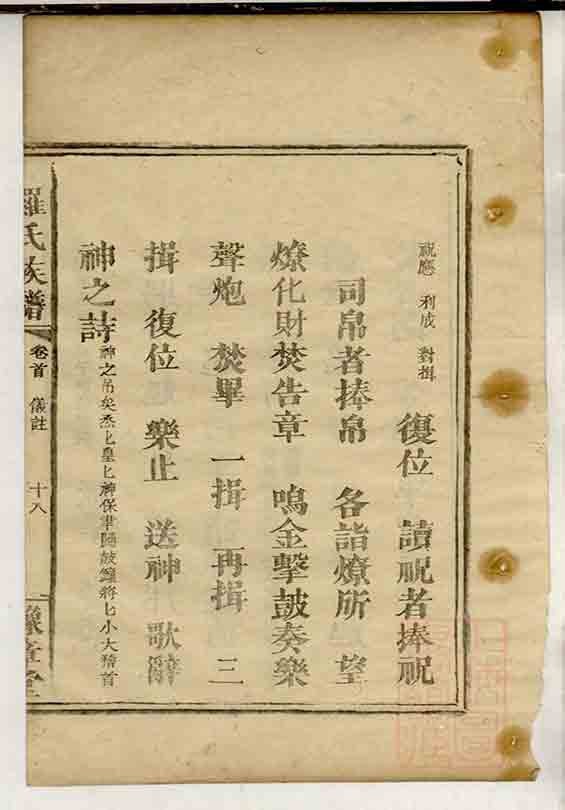 祝應 利成 對揖 復位 讀祝者捧祝
司帛者捧帛 各詣燎所 望
燎化財焚告章 鳴金擊鼓奏樂
聲炮 焚畢 一揖 再揖 三
揖 復位 樂止 送神 歌辭
神之詩 神之吊矣 杰匕皇匕神保聿歸鼓鐘將匕小大稽首
羅氏族譜 卷首 儀註 十八 豫章堂